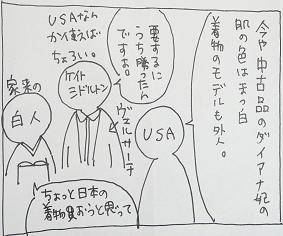 今や中古品のダイアナ妃の
肌の色はまっ白
着物のモデルも外人。
要するに
うち勝ったん
ですよ。
USAなん
か使えば
ちょろい。
ケイト
ミドルトン
ヴェルサーチ
家来の
白人
USA
ちょっと日本の
着物買おっと思って